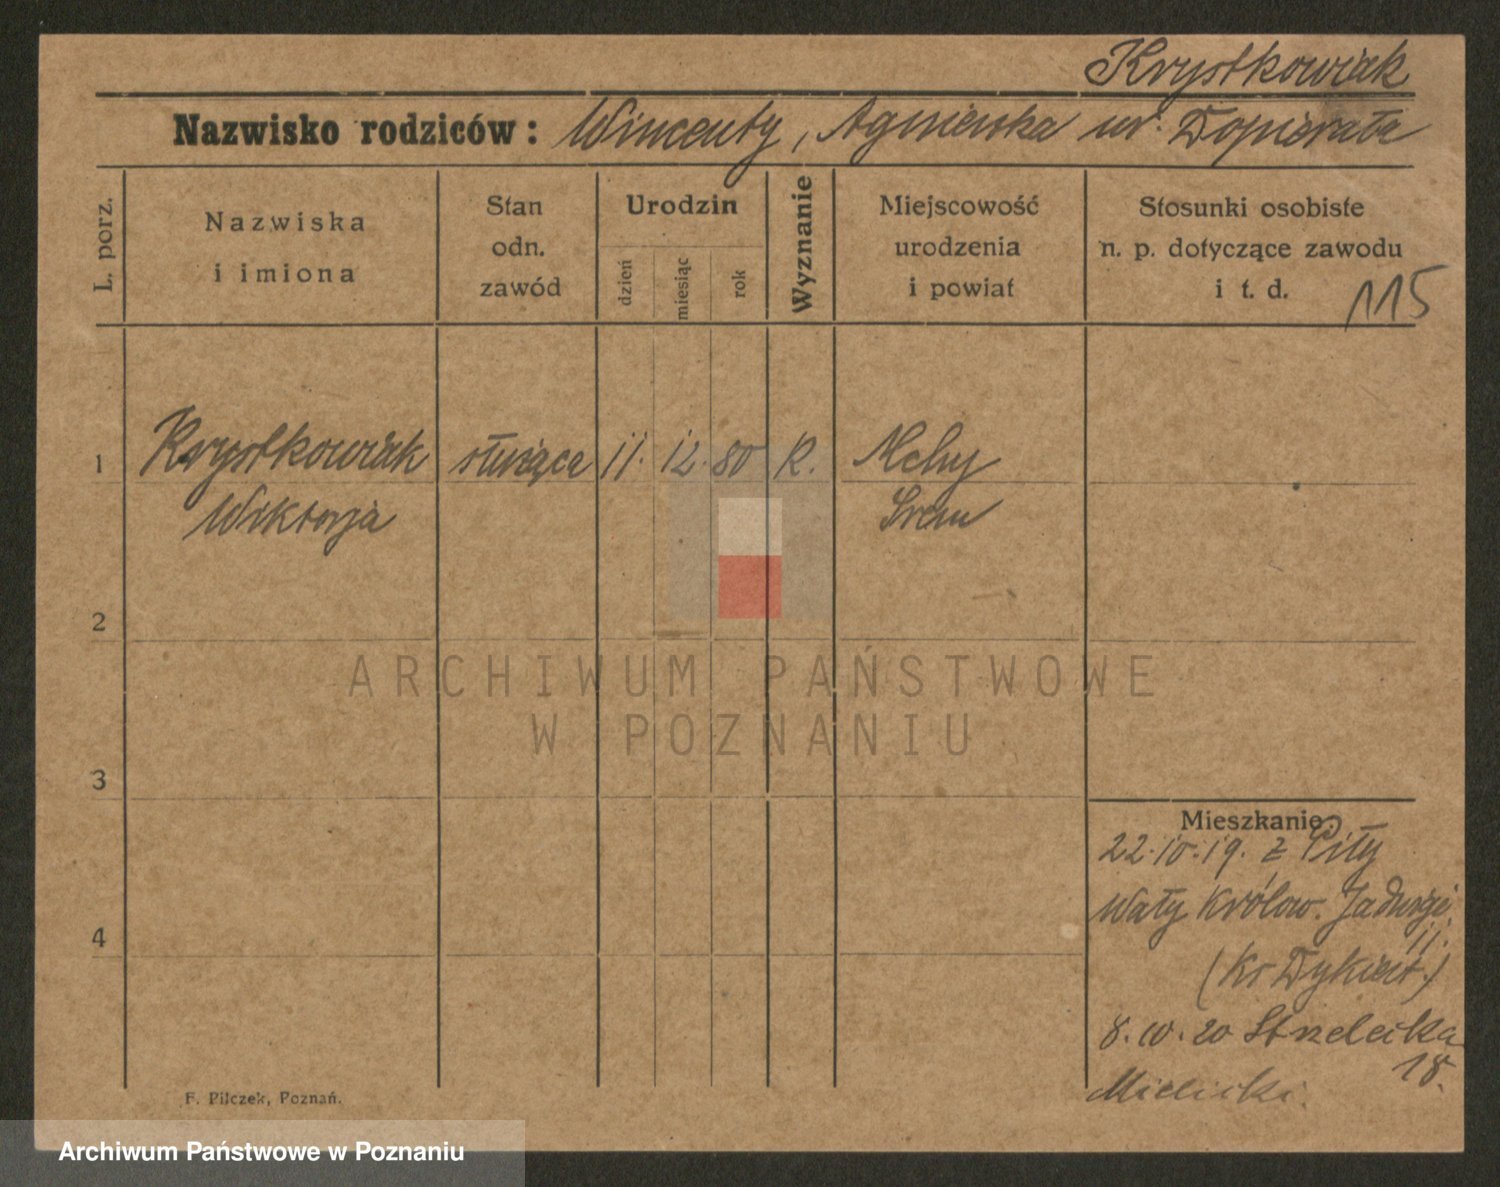 Krystkowiak
Nazwisko rodziców: Wincenty, Agnieszka ur. Dopierała
L. porz.
Nazwiska
i imiona
Stan
odn.
zawód
Urodzin
dzień
miesiąc
rok
Wyznanie
Miejscowość
urodzenia
i powiat
Stosunki osobiste
n. p. dotyczące zawodu
i t. d.
115
1
Krystkowiak służąca 11. 12. 80 K. Mchy
Wiktorja Śrem
2
ARCHIWUM PAŃSTWOWE
W POZNANIU
3
Mieszkanie:
22.10.19. z Piły
Wały Królow. Jadwigi
11.
4
8.10.20 Strzelecka
18.
Mielicki.
F. Pilczek, Poznań.
Archiwum Państwowe w Poznaniu